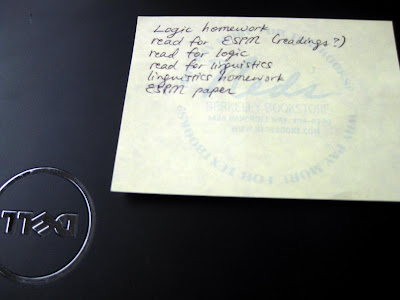 Logic homework
read for ESPM (readings?)
read for logic
read for linguistics
linguistics homework
ESPM paper
WHY PAY MORE FOR TEXTBOOKS?
DELL